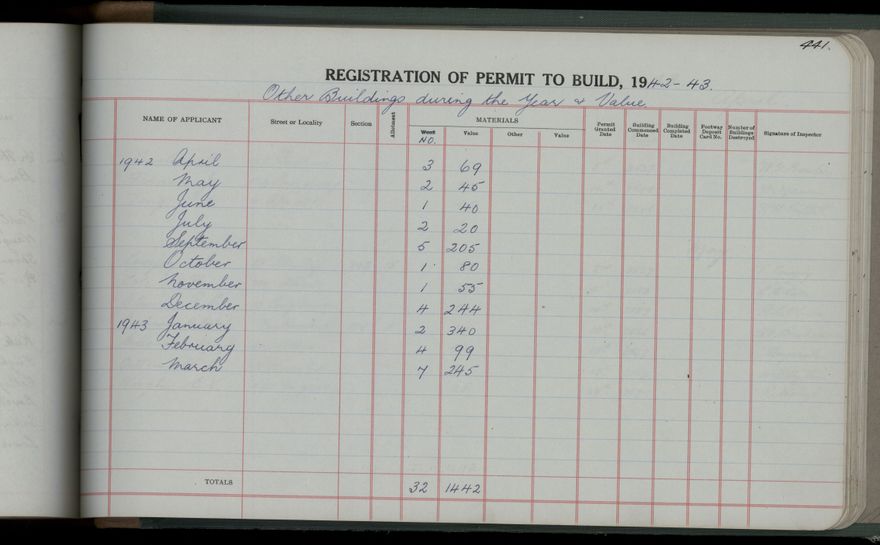 441.
REGISTRATION OF PERMIT TO BUILD, 1942-43.
Other Buildings during the Year & Value.
NAME OF APPLICANT Street or Locality Section Allotment MATERIALS Permit Granted Date Building Commenced Date Building Completed Date Footway Deposit Card No. Number of Buildings Destroyed Signature of Inspector
NO. Value Other Value
1942 April 3 69
May 2 45
June 1 40
July 2 20
September 5 205
October 1 80
November 1 55
December 4 244
1943 January 2 340
February 4 99
March 7 245
TOTALS 32 1442